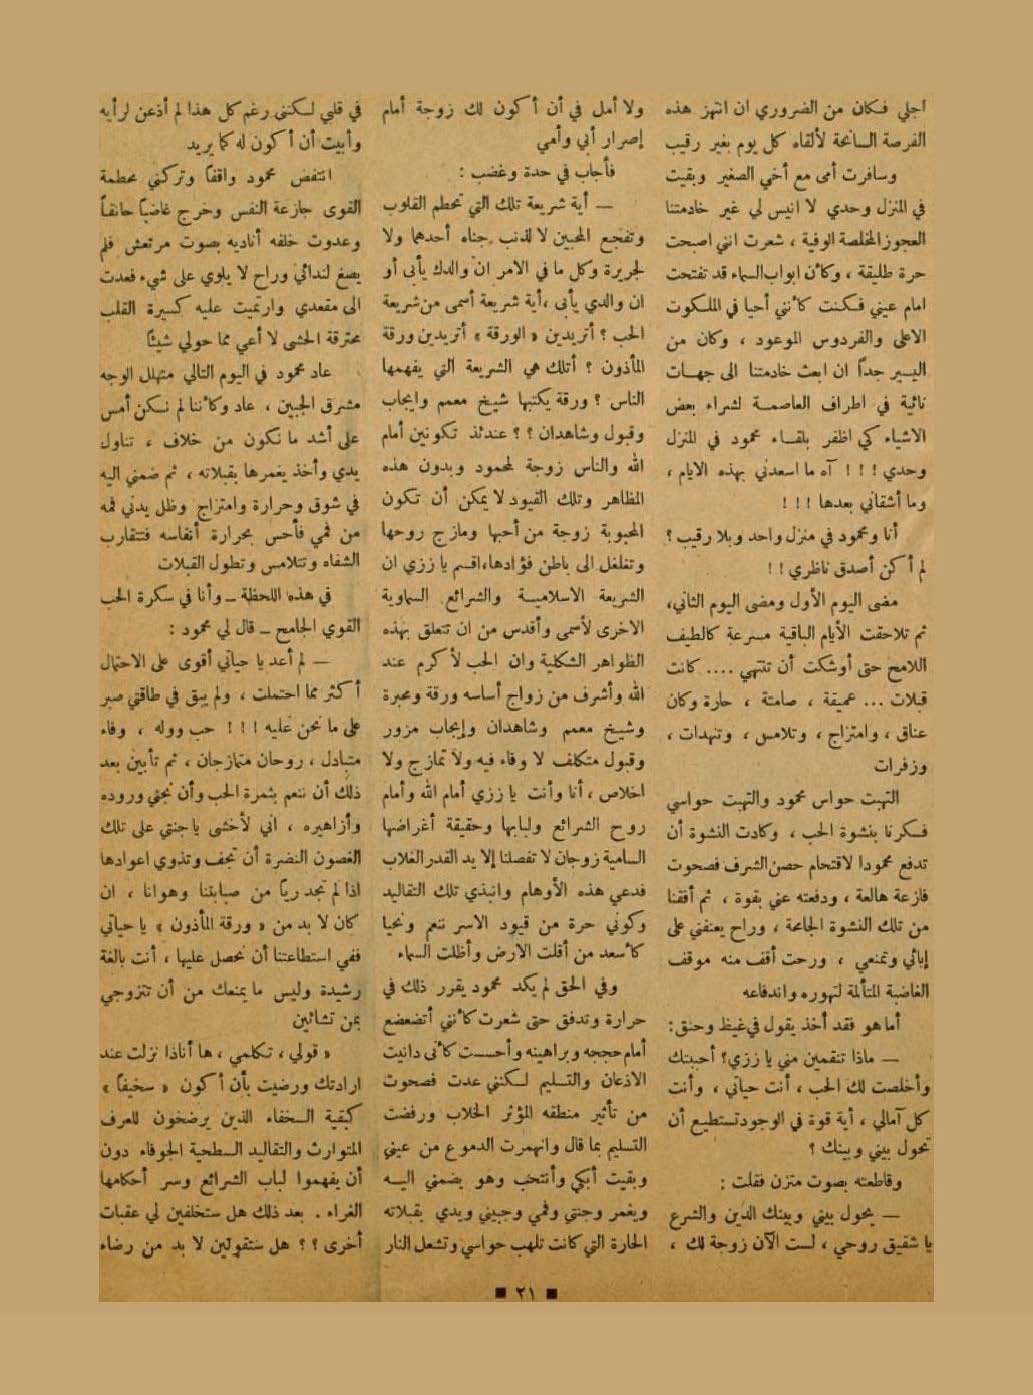 اجلي فكان من الضروري ان انتهز هذه
الفرصة السانحة لألقاه كل يوم بغير رقيب
وسافرت أمى مع أخي الصغير وبقيت
في المنزل وحدي لا انيس لي غير خادمتنا
العجوز المخلصة الوفية ، شعرت انني اصبحت
حرة طليقة ، وكأن ابواب السماء قد تفتحت
امام عيني فكنت كأنني أحيا في الملكوت
الاعلى والفردوس الموعود ، وكان من
اليسير جداً ان ابعث خادمتنا الى جهات
نائية في اطراف العاصمة لشراء بعض
الاشياء كي اظفر بلقاء محمود في المنزل
وحدي ! ! ! آه ما اسعدني بهذه الايام ،
وما أشقاني بعدها ! ! !
أنا ومحمود في منزل واحد وبلا رقيب ؟
لم أكن أصدق ناظري ! !
مضى اليوم الأول ومضى اليوم الثاني،
ثم تلاحقت الأيام الباقية مسرعة كالطيف
اللامح حتى أوشكت أن تنتهي .... كانت
قبلات ... عميقة ، صامتة ، حارة وكان
عناق ، وامتزاج ، وتلامس ، وتنهدات ،
وزفرات
التهبت حواس محمود والتهبت حواسي
فسكرنا بنشوة الحب ، وكادت النشوة أن
تدفع محمودا لاقتحام حصن الشرف فصحوت
فازعة هالعة ، ودفعته عني بقوة ، ثم أفقنا
من تلك النشوة الجامحة ، وراح يعنفني على
إبائي وتمنعي ، ورحت أقف منه موقف
الغاضبة المتألمة لتهوره واندفاعه
أما هو فقد أخذ يقول في غيظ وحنق :
— ماذا تنقمين مني يا ززي ؟ أحببتك
وأخلصت لك الحب ، أنت حياتي ، وأنت
كل آمالي ، أية قوة في الوجود تستطيع أن
تحول بيني وبينك ؟
وقاطعته بصوت متزن فقلت :
— يحول بيني وبينك الدين والشرع
يا شفيق روحي ، لست الآن زوجة لك ،
ولا أمل في أن أكون لك زوجة أمام
إصرار أبي وأمي
فأجاب في حدة وغضب :
— أية شريعة تلك التي تحطم القلوب
وتفجع المحبين لا لذنب جناه أحدهما ولا
لجريرة وكل ما في الامر ان والدك يأبى أو
ان والدي يأبى ، أية شريعة أسمى من شريعة
الحب ؟ أتريدين « الورقة » أتريدين ورقة
المأذون ؟ أتلك هي الشريعة التي يفهمها
الناس ؟ ورقة يكتبها شيخ معمم وايجاب
وقبول وشاهدان ؟ ؟ عندئذ تكونين أمام
الله والناس زوجة لمحمود وبدون هذه
المظاهر وتلك القيود لا يمكن أن تكون
المحبوبة زوجة من أحبها ومازج روحها
وتغلغل الى باطن فؤادها، اقسم يا ززي ان
الشريعة الاسلامية والشرائع السماوية
الاخرى لأسمى وأقدس من ان تتعلق بهذه
الظواهر الشكلية وان الحب لأكرم عند
الله وأشرف من زواج أساسه ورقة ومحبرة
وشيخ معمم وشاهدان وإيجاب مزور
وقبول متكلف لا وفاء فيه ولا تمازج ولا
اخلاص ، أنا وأنت يا ززي أمام الله وأمام
روح الشرائع ولبابها وحقيقة أغراضها
السامية زوجان لا تفصلنا إلا يد القدر الغلاب
فدعي هذه الأوهام وانبذي تلك التقاليد
وكوني حرة من قيود الاسر ننعم ونحيا
كأسعد من أقلت الارض وأظلت السماء
وفي الحق لم يكد محمود يقرر ذلك في
حرارة وتدفق حتى شعرت كأنني أتضعضع
أمام حججه وبراهينه وأحسست كأنى دانيت
الاذعان والتسليم لكنني عدت فصحوت
من تأثير منطقه المؤثر الخلاب ورفضت
التسليم بما قال وانهمرت الدموع من عيني
وبقيت أبكي وأنتحب وهو يضمني اليه
ويغمر وجنتي وفمي وجبيني ويدي بقبلاته
الحارة التي كانت تلهب حواسي وتشعل النار
في قلبي لكننى رغم كل هذا لم أذعن لرأيه
وأبيت أن أكون له كما يريد
انتفض محمود واقفاً وتركني محطمة
القوى جازعة النفس وخرج غاضباً حانقاً
وعدوت خلفه أناديه بصوت مرتعش فلم
يصغ لندائي وراح لا يلوي على شيء فعدت
الى مقعدي وارتميت عليه كسيرة القلب
محترقة الحشى لا أعي مما حولي شيئاً
عاد محمود في اليوم التالي متهلل الوجه
مشرق الجبين ، عاد وكأننا لم نكن أمس
على أشد ما نكون من خلاف ، تناول
يدي وأخذ يغمرها بقبلاته ، ثم ضمني اليه
في شوق وحرارة وامتزاج وظل يدني فمه
من فمي فأحس بحرارة أنفاسه فتتقارب
الشفاه وتتلامس وتطول القبلات
في هذه اللحظة – وأنا في سكرة الحب
القوي الجامح – قال لي محمود :
— لم أعد يا حياتي أقوى على الاحتمال
أكثر مما احتملت ، ولم يبق في طاقتي صبر
على ما نحن عليه ! ! ! حب ووله ، وفاء
متبادل ، روحان متمازجان ، ثم تأبين بعد
ذلك أن ننعم بثمرة الحب وأن نجني وروده
وأزاهيره ، اني لأخشى يا جنتي على تلك
الغصون النضرة أن تجف وتذوي اعوادها
اذا لم تجد رياً من صبابتنا وهوانا ، ان
كان لا بد من « ورقة المأذون » يا حياتي
ففي استطاعتنا أن نحصل عليها ، أنت بالغة
رشيدة وليس ما يمنعك من أن تتزوجي
بمن تشائين
« قولي ، تكلمي ، ها أناذا نزلت عند
ارادتك ورضيت بأن أكون « سخيفاً »
كبقية السخفاء الذين يرضخون للعرف
المتوارث والتقاليد السطحية الجوفاء دون
أن يفهموا لباب الشرائع وسر أحكامها
الغراء . بعد ذلك هل ستخلقين لي عقبات
أخرى ؟ ؟ هل ستقولين لا بد من رضاء
■ ٢١ ■